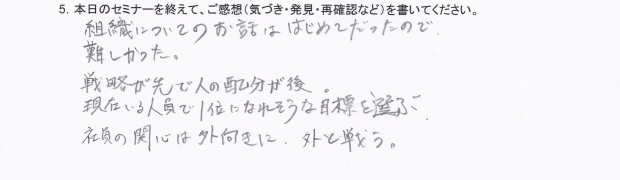 5. 本日のセミナーを終えて、ご感想(気づき・発見・再確認など)を書いてください。
組織についてのお話ははじめてだったので、
難しかった。
戦略が先で人の配分が後。
現在いる人員で1位になれそうな目標を選ぶ。
社員の関心は外向きに、外と戦う。